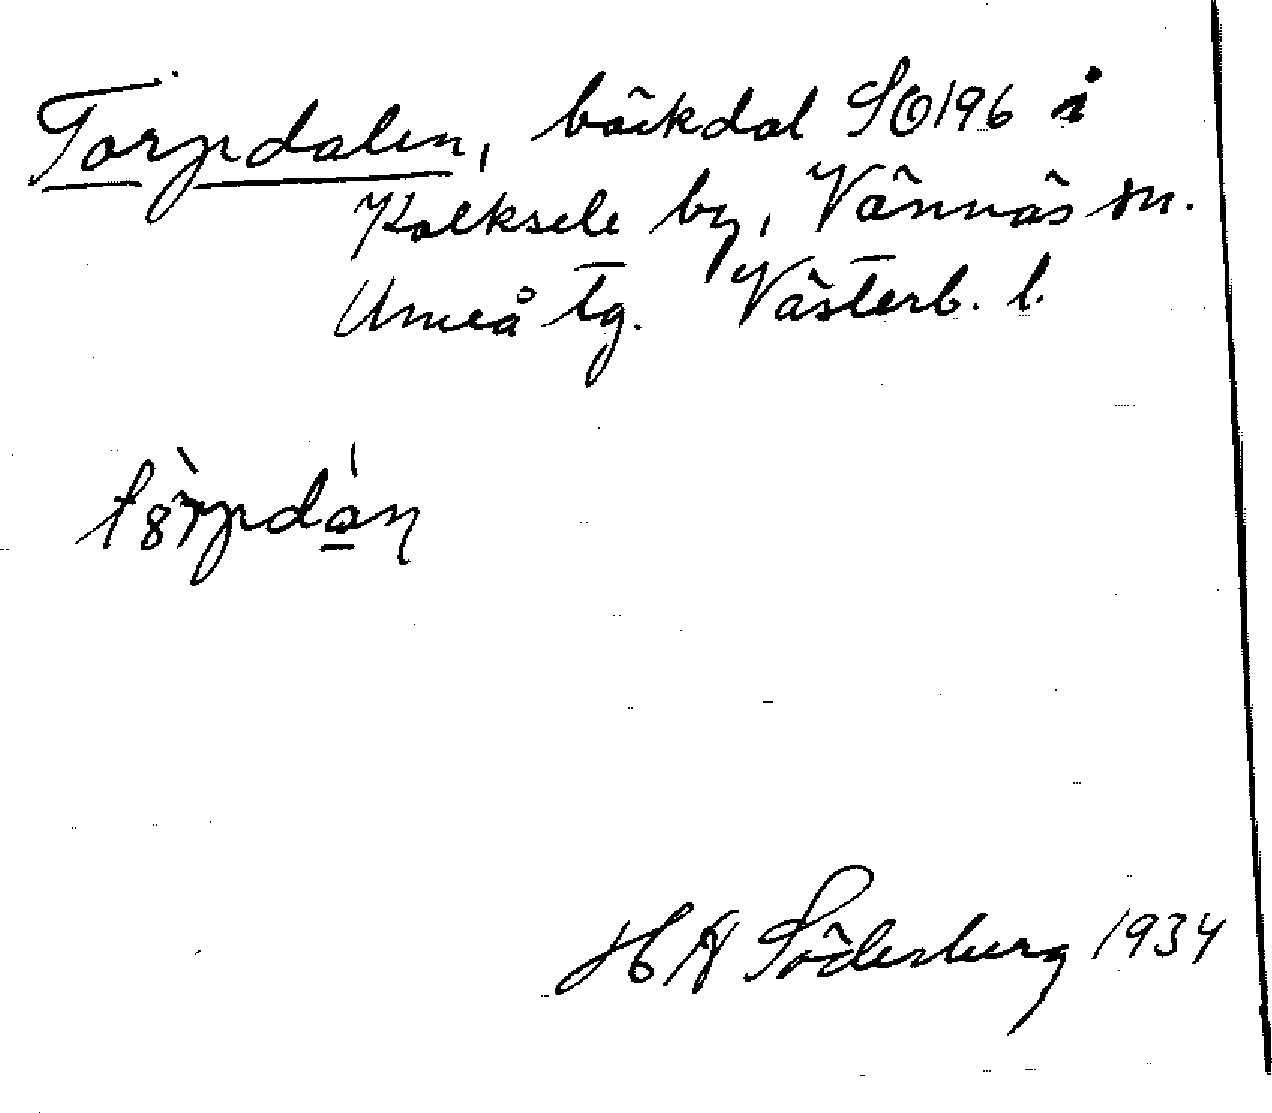 Torpdalen, bäckdal SO196 i
Kolksele by, Vännäs sn.
Umeå tg. Västerb. l.
H A Söderberg 1934